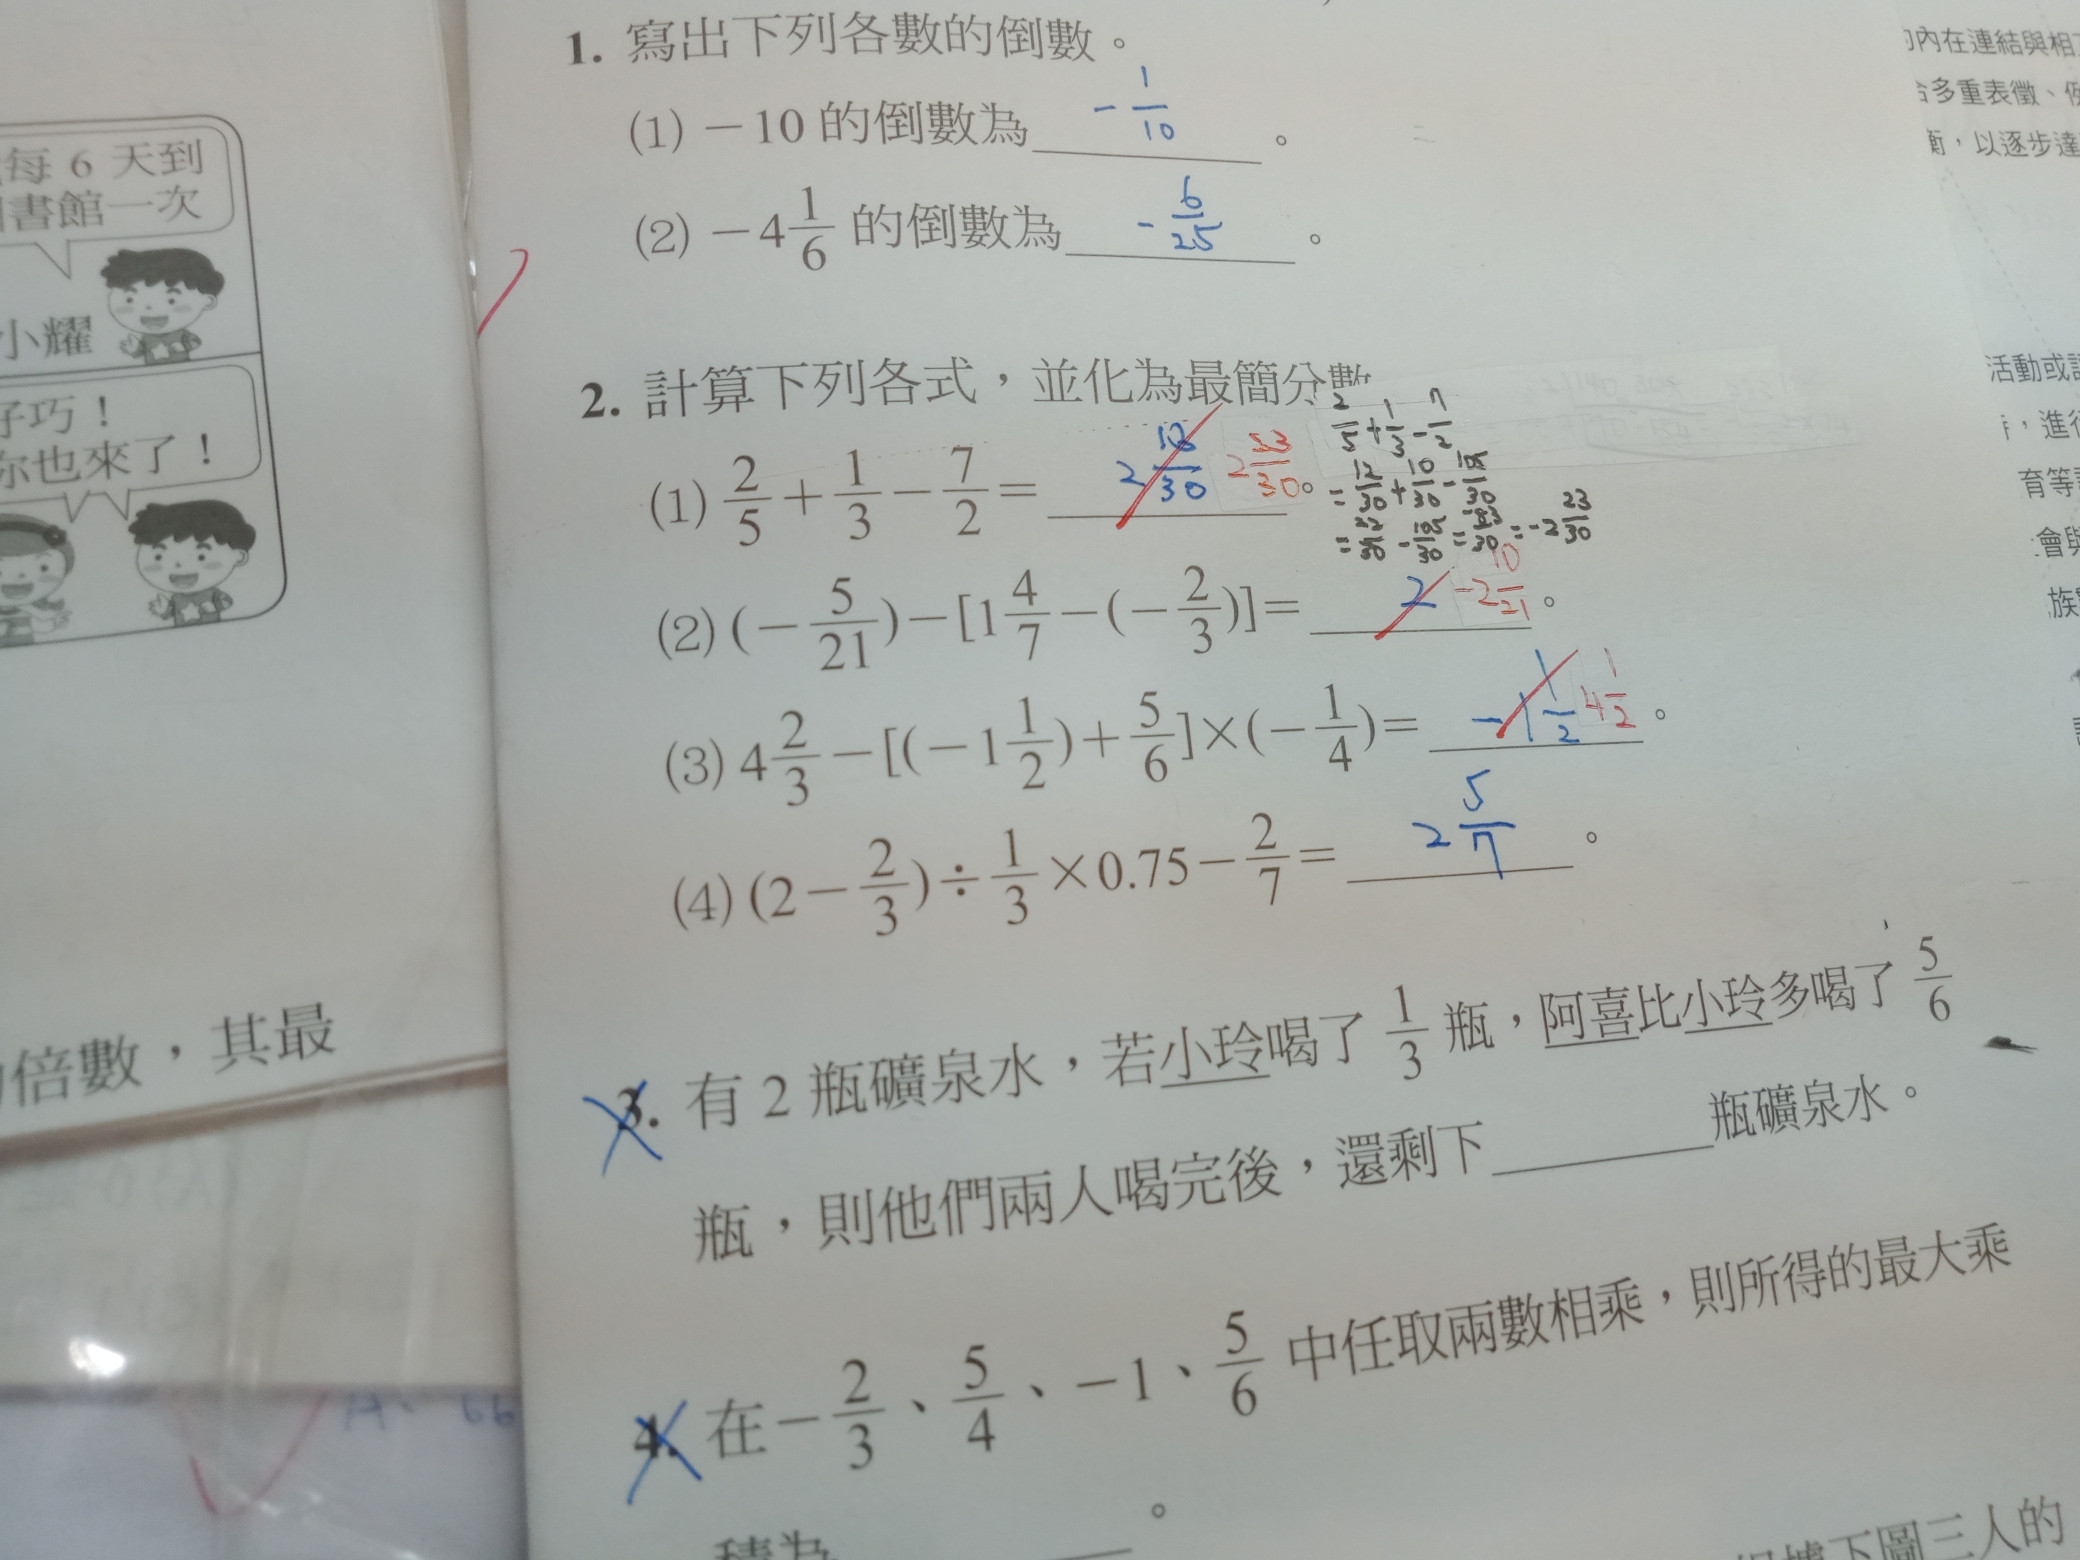 1. 寫出下列各數的倒數。
(1) －10 的倒數為 -1/10 。
(2) －4 1/6 的倒數為 -6/25 。
2. 計算下列各式，並化為最簡分數
(1) 2/5＋1/3－7/2＝ 2 /30 2 23/30 。
2/5+1/3-7/2
=12/30+10/30-105/30
=22/30-105/30= /30=-2 23/30
(2) (－5/21)－[1 4/7－(－2/3)]＝ 2 -2 10/21 。
(3) 4 2/3－[(－1 1/2)＋5/6]×(－1/4)＝ -1 1/2 4 1/2 。
(4) (2－2/3)÷1/3×0.75－2/7＝ 2 5/7 。
3. 有 2 瓶礦泉水，若小玲喝了 1/3 瓶，阿喜比小玲多喝了 5/6
瓶，則他們兩人喝完後，還剩下 瓶礦泉水。
4. 在－2/3、5/4、－1、5/6 中任取兩數相乘，則所得的最大乘
積為 。
下圖三人的
每 6 天到
書館一次
小耀
好巧！
你也來了！
倍數，其最
內在連結與相
多重表徵、
衡，以逐步達
活動或
，進行
育等
會與
族